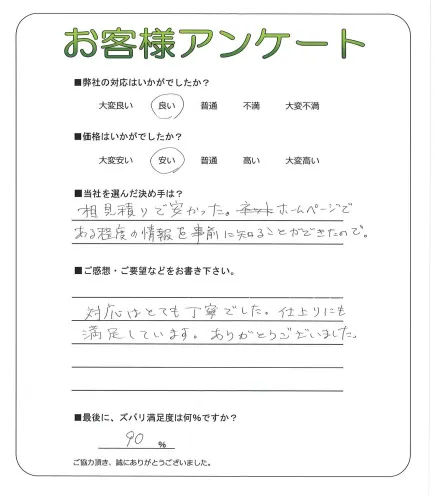 お客様アンケート
■弊社の対応はいかがでしたか？
大変良い 良い 普通 不満 大変不満
■価格はいかがでしたか？
大変安い 安い 普通 高い 大変高い
■当社を選んだ決め手は？
相見積りで安かった。ネットホームページで
ある程度の情報を事前に知ることができたので。
■ご感想・ご要望などをお書き下さい。
対応はとても丁寧でした。仕上りにも
満足しています。ありがとうございました。
■最後に、ズバリ満足度は何%ですか？
90 %
ご協力頂き、誠にありがとうございました。